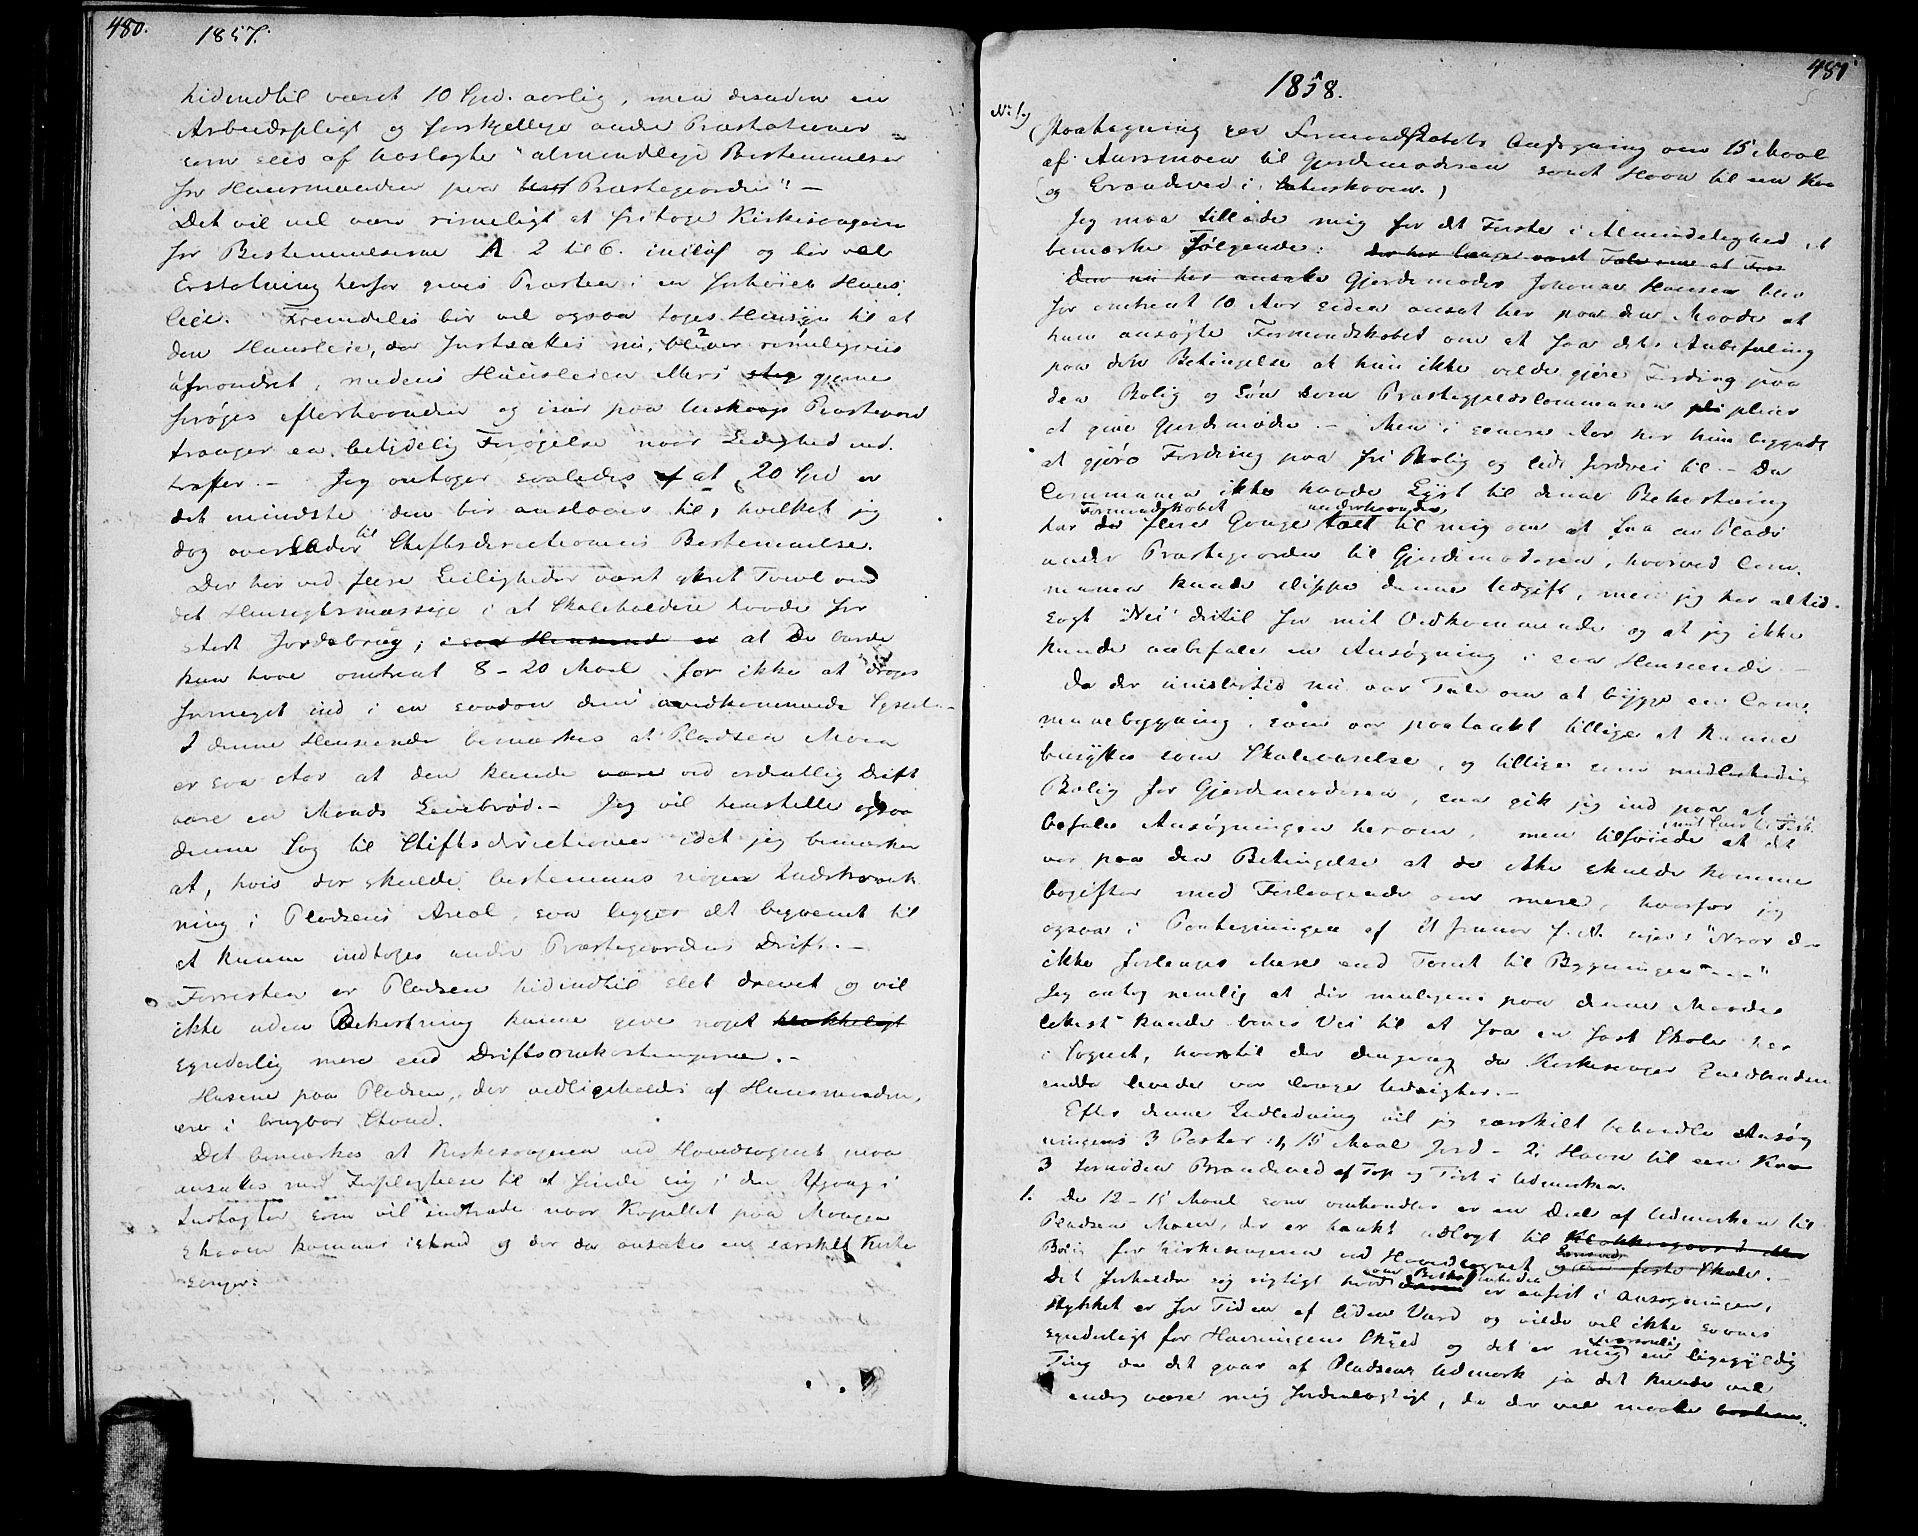 480.
1857.
hidindtil været 10 Spd. aarlig, men desuden en
Arbeidspligt og forskjellige andre Præstationer
som sees af hoslagte "almindelige Bestemmelser
for Huusmanden paa Præstegaarden". —
Det vil vel være rimeligt at fritage Kirkesangeren
for Bestemmelserne A 2 til 6. incl. og bør vel
Erstatning herfor gives Præsten i en forhøiet Huus
leie. Fremdeles bør vel ogsaa tages Hensyn til at
den Huusleie, der fastsættes nu, bliver rimeligviis
uforandret, medens Huusleien ellers gjerne
forøges efterhaanden og især paa Præstegaard
en betydelig Forøgelse naar Ledighed ind
træffer. — Jeg antager saaledes at 20 Spd er
det mindste den bør ansættes til, hvilket jeg
dog overlader til Stiftsdirectionens Bestemmelse.
Der har ved flere Leiligheder været yttret Tvivl om
det Hensigtsmæssige i at Skoleholdere havde for
stort Jordebrug, i saa Henseende er at De burde
kun have omtrent 8 - 20 Maal for ikke at drages
formeget ind i en saadan dem uvedkommende Syssel.
I denne Henseende bemærkes at Pladsen Moen
er saa stor at den kunde være ved ordentlig Drift
være en Mands Levebrød. — Jeg vil henstille ogsaa
denne Sag til Stiftsdirectionen idet jeg bemærker
at, hvis der skulde bestemmes nogen Indskrænk
ning i Pladsens Areal, saa ligger det beqvemt til
at kunne indtages under Præstegaardens Drift. —
Forresten er Pladsen hidindtil slet drevet og vil
ikke uden Bekostning kunne give noget
synderlig mere end Driftsomkostningerne. —
Husene paa Pladsen, der vedligeholdes af Huusmanden,
ere i brugbar Stand.
Det bemærkes at Kirkesangeren ved Hovedsognet maa
ansættes med Forpligtelse til at finde sig i den Afgang i
Indtægter som vil indtræde naar Kapellet paa Mangen
skoven kommer istand og der da ansættes en særskilt Kirke
sanger.
481
1858.
No 1.
(Paategning paa Formandskabets Ansøgning om 15 Maal
af Aursmoen til Gjordemoderen samt Havn til en Ko
og Brændeved i Skoven.)
Jeg maa tillade mig for det Første i Almindelighed at
bemærke Følgende: der har længe været Tale om at
Den nu her ansatte Gjordemoder Johanne Hansen blev
for omtrent 10 Aar siden ansat her paa den Maade at
hun ansøgte Formandskabet om at faae dets Anbefaling
paa den Betingelse at hun ikke vilde gjøre Fordring paa
den Bolig og Løn som Præstegjeldscommunen pleier
at give Gjordemødre. — Men i senere Aar har hun begyndt
at gjøre Fordring paa fri Bolig og lidt Jordvei til. — Da
Communen ikke havde Lyst til denne Bekostning
Formandskabet underhaanden
har der flere Gange talt til mig om at faa en Plads
under Præstegaarden til Gjordemoderen, hvorved Com
munen kunde slippe denne Udgift, men jeg har altid
sagt "Nei" dertil for mit Vedkommende og at jeg ikke
kunde anbefale en Ansøgning i saa Henseende. —
Da der imidlertid nu var Tale om at bygge en Com
munebygning, som var paatænkt tillige at kunne
benyttes som Skoleværelse, og tillige som midlertidig
Bolig for Gjordemoderen, saa gik jeg ind paa at
befale Ansøgningen herom, men tilføiede at det
var paa den Betingelse at de ikke skulde komme
bagefter med Forlangende om mere, hvorfor jeg
ogsaa i Paategningen af 21 Januar f. A. siger: "Naar der
ikke forlanges Mere end Tomt til Bygningen ---"
Jeg antog nemlig at der muligens paa denne Maade
lettest kunde banes Vei til at faa en fast Skole her
i Sognet, hvortil der dengang da Kirkesanger
endda levede var lange Udsigter. —
Efter denne Indledning vil jeg særskilt behandle Ansøg
ningens 3 Poster 1, 15 Maal Jord - 2, Havn til een Ko
3 fornøden Brændeved af Top og Tørt i Udmarken.
1. De 12 - 15 Maal som omhandles er en Deel af Udmarken til
Pladsen Moen, der er tænkt udlagt til Klokkergaard eller
Bolig for Kirkesangeren ved Hovedsognet og faste Skole. —
Det forholder sig rigtigt hvad er anført i Ansøgningen,
Stykket er for Tiden af liden Værd og vilde vel ikke savnes
synderligt for Havningens Skyld og det er mig personlig en ligegyldig
Ting da det gaar af Pladsens Udmark ja det kunde vel
endog være mig fordeelagtigt, da der vel maatte